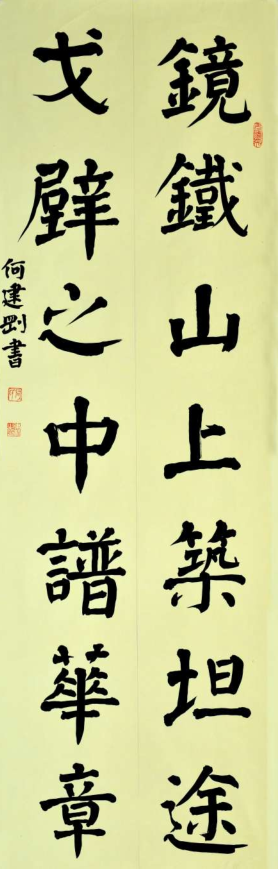 鏡鐵山上築坦途
戈壁之中譜華章
何建剛書